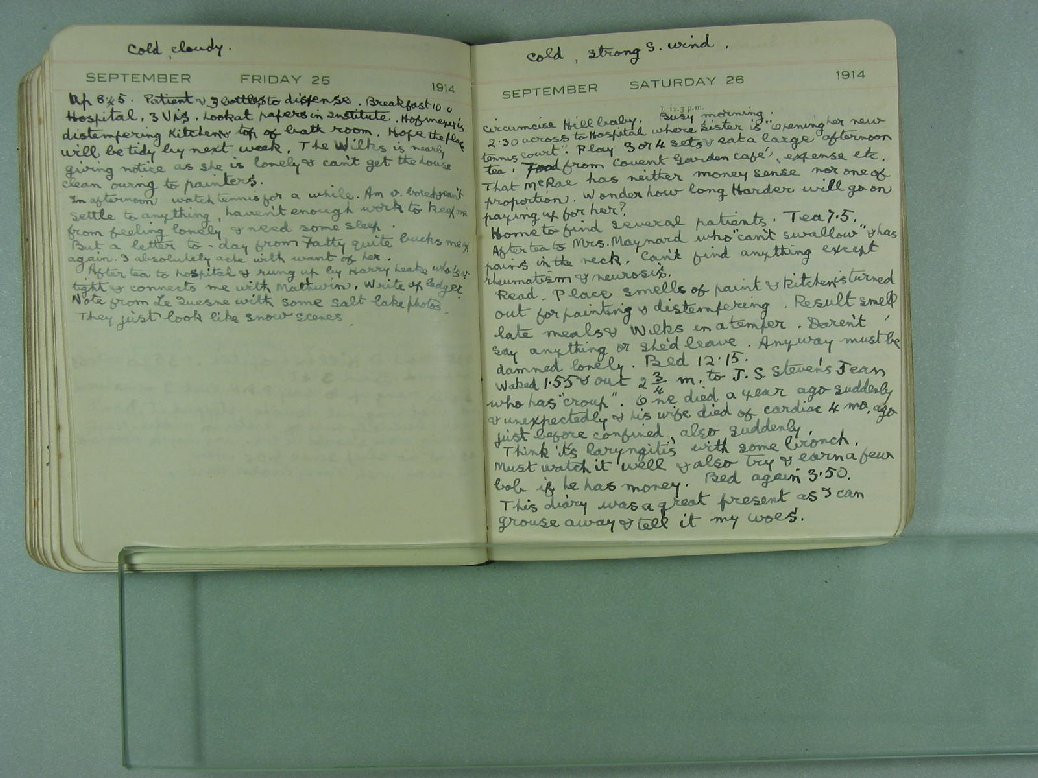 Cold, cloudy.
SEPTEMBER FRIDAY 25 1914
Up 8.45. Patient & 3 bottles to dispense. Breakfast 10.0
Hospital, 3 Vis. Look at papers in Institute. Hofmeyer is
distempering Kitchen & top of bath room. Hope the place
will be tidy by next week. The Wilks is nearly
giving notice as she is lonely & can't get the house
clean owing to painters.
In afternoon watch tennis for a while. Am v. bored, can't
settle to anything, haven't enough work to keep me
from feeling lonely & need some sleep.
But a letter to-day from Fatty quite bucks me up
again. I absolutely ache with want of her.
After tea to hospital & rung up by Harry Leake who is
tight & connects me with Mattuvin. Write up Ledger.
Note from Le Quesne with some salt lake photos.
They just look like snow scenes
Cold, strong S. wind.
SEPTEMBER SATURDAY 26 1914
Circumcise Hill baby. Busy morning.
2.30 across to Hospital where Sister is "opening her new
tennis court". Play 3 or 4 sets & eat a large afternoon
tea. Food from Covent Garden café, expense etc.
That McRae has neither money sense nor one of
proportion. Wonder how long Harder will go on
paying up for her?
Home to find several patients. Tea 7.5.
After tea to Mrs. Maynard who "can't swallow" & has
pains in the neck. Can't find anything except
rheumatism & neurosis.
Read. Place smells of paint & kitchen is turned
out for painting & distempering. Result smell
late meals & Wilks in a temper. Daren't
say anything or she'd leave. Anyway must be
damned lonely. Bed 12.15.
Waked 1.55 & out 2 3/4 m. to J. S. Steven's Jean
who has "croup". One died a year ago suddenly
& unexpectedly & his wife died of cardiac 4 mo. ago
just before confined, also suddenly.
Think it's laryngitis with some bronch.
Must watch it well & also try & earn a few
bob if he has money. Bed again 3.50.
This diary was a great present as I can
grouse away & tell it my woes.